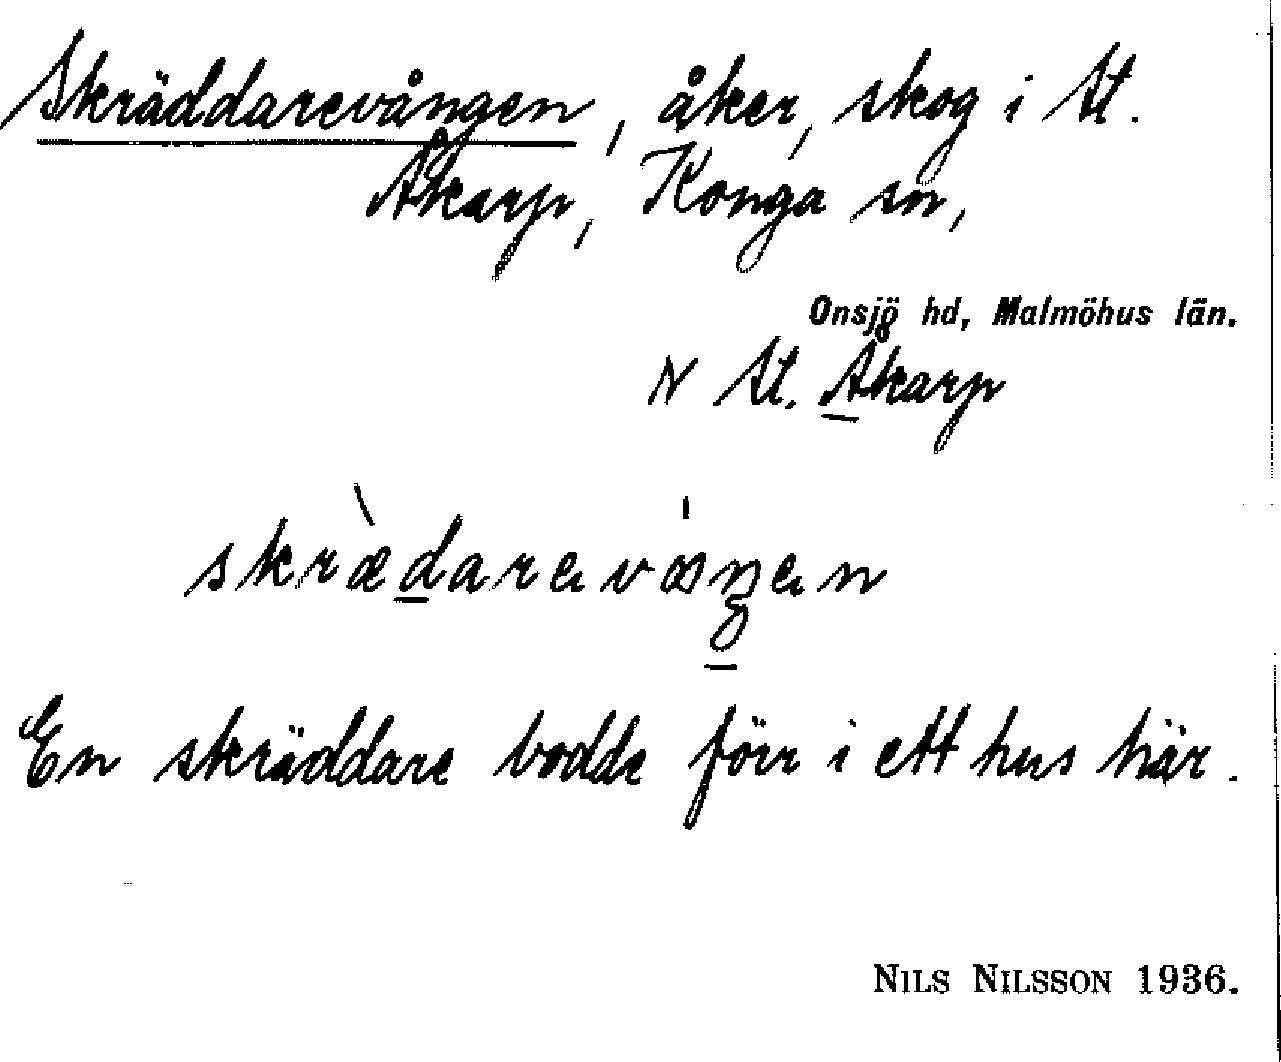 Skräddarevången, åker, skog i St.
Åkarp, Konga sn,
Onsjö hd, Malmöhus län.
N St. Åkarp
skræ̀darevángen
En skräddare bodde förr i ett hus här.
NILS NILSSON 1936.